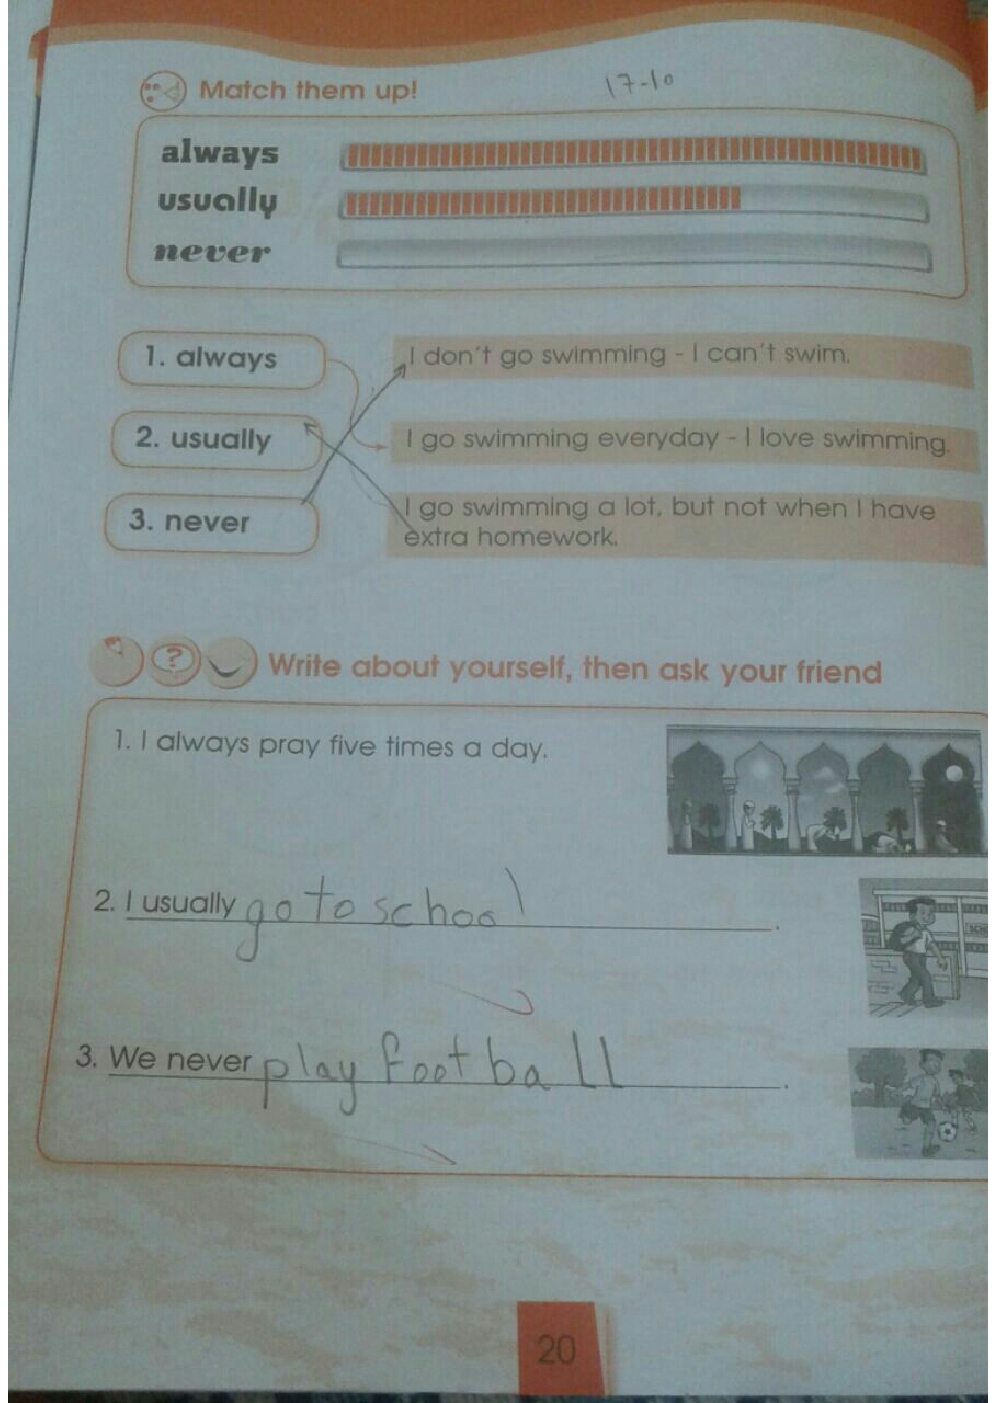 Match them up!
17-10
always
usually
never
1. always
I don't go swimming - I can't swim.
2. usually
I go swimming everyday - I love swimming.
3. never
I go swimming a lot, but not when I have
extra homework.
Write about yourself, then ask your friend
1. I always pray five times a day.
2. I usually go to school.
3. We never play foot ball.
20